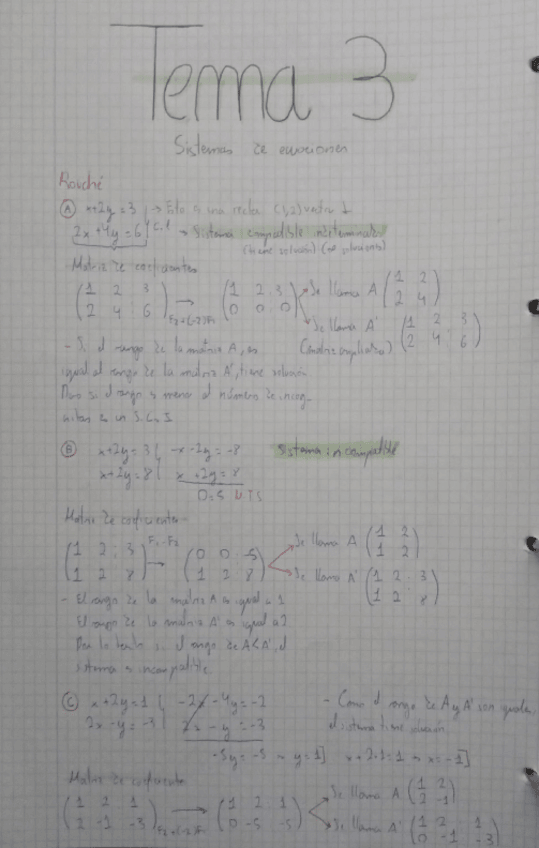 Tema 3
Sistemas de ecuaciones
Rouché
A x+2y=3 → Esto es una recta (1,2) vector ⊥
2x+4y=6 → Sistema compatible indeterminado
(tiene solución)
Matriz de coeficientes
1 2 3 → 1 2 3 Se llama A 1 2
2 4 6 F2+(-2)F1 0 0 0 2 4
Se llama A' 1 2 3
(matriz ampliada) 2 4 6
- Si el rango de la matriz A, es
igual al rango de la matriz A', tiene solución.
Pero si el rango es menor al número de incog-
nitas es un S.C.I
B x+2y=3 -x-2y=-8 Sistema incompatible
x+2y=8 x+2y=8
0=5
Matriz de coeficientes
1 2 3 → 0 0 -5 Se llama A 1 2
1 2 8 1 2 8 1 2
Se llama A' 1 2 3
1 2 8
- El rango de la matriz A es igual a 1
El rango de la matriz A' es igual a 2
Por lo tanto si el rango de A<A', el
sistema es incompatible.
C x+2y=1 -2x-4y=-2 - Como el rango de A y A' son iguales,
2x-y=-3 2x-y=-3 el sistema tiene solución
-5y=-5 → y=1 x+2·1=1 → x=-1
Matriz de coeficiente
1 2 1 → 1 2 1 Se llama A 1 2
2 -1 -3 F2+(-2)F1 0 -5 -5 2 -1
Se llama A' 1 2 1
0 -1 -3